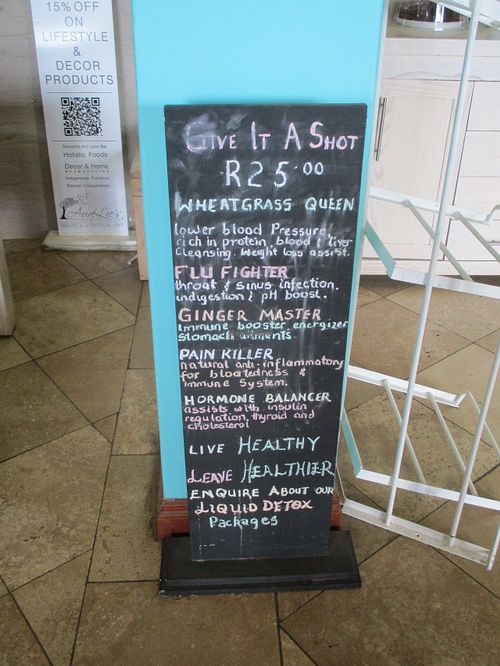 15% OFF
ON
LIFESTYLE
&
DECOR
PRODUCTS
Holistic Foods
Decor & Home
Indigenous Furniture
AureLie's
GIVE IT A SHOT
R25.00
WHEATGRASS QUEEN
lower blood Pressure,
rich in protein, blood & liver
cleansing. Weight loss assist.
FLU FIGHTER
throat & sinus infection,
indigestion & pH boost.
GINGER MASTER
immune booster, energizer
stomach ailments.
PAIN KILLER
natural anti-inflammatory
for bloatedness &
immune System.
HORMONE BALANCER
assists with insulin
regulation, thyroid and
cholesterol
LIVE HEALTHY
LEAVE HEALTHIER
ENQUIRE ABOUT OUR
LIQUID DETOX
Packages